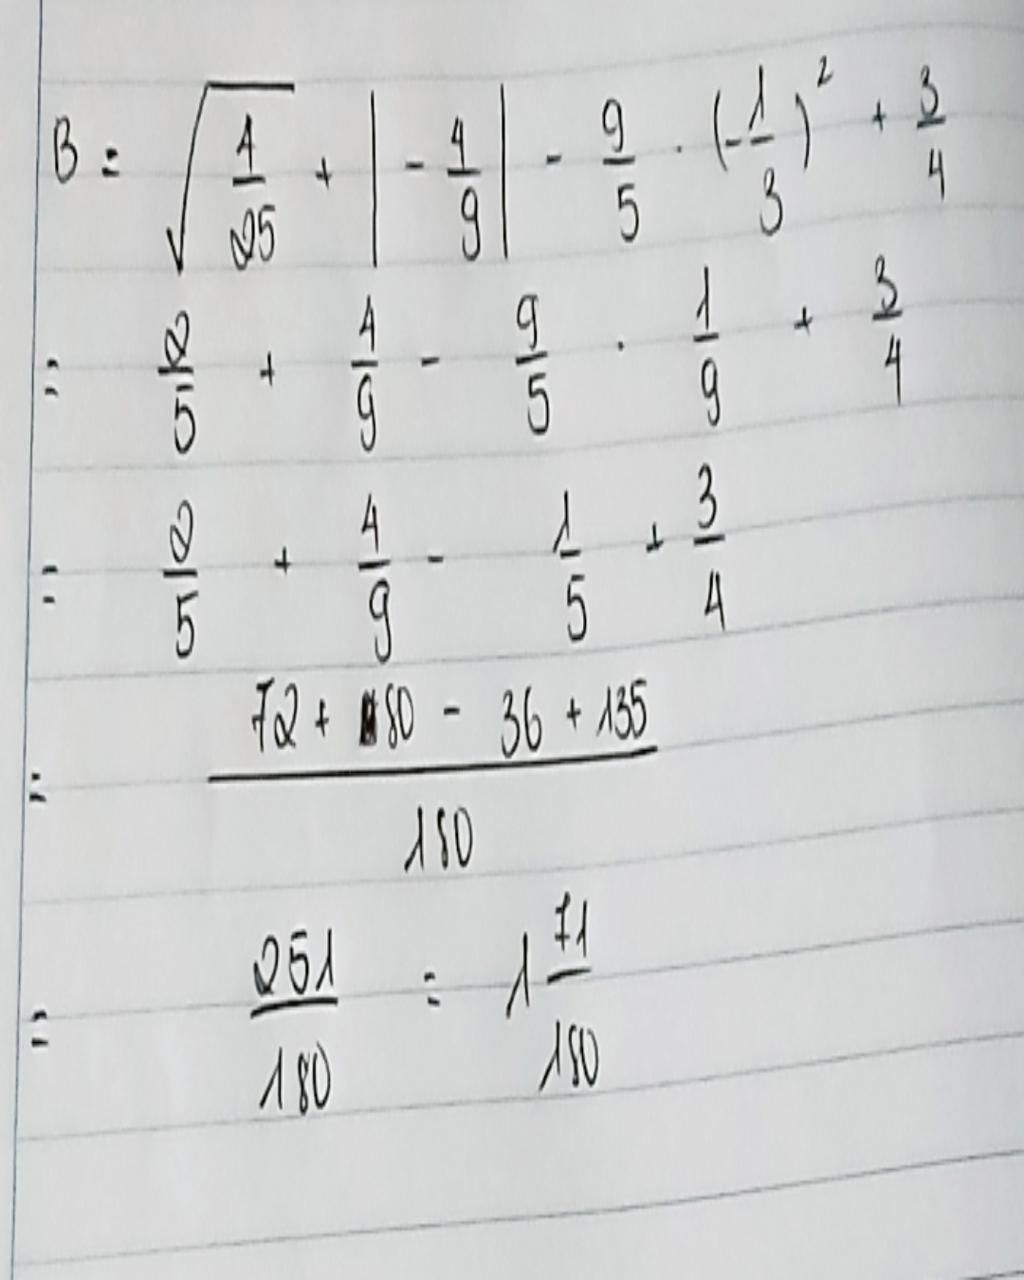 B = √(4/25) + |-4/9| - 9/5 · (-1/3)² + 3/4
= 2/5 + 4/9 - 9/5 · 1/9 + 3/4
= 2/5 + 4/9 - 1/5 + 3/4
= (72 + 80 - 36 + 135)/180
= 251/180 = 1 71/180